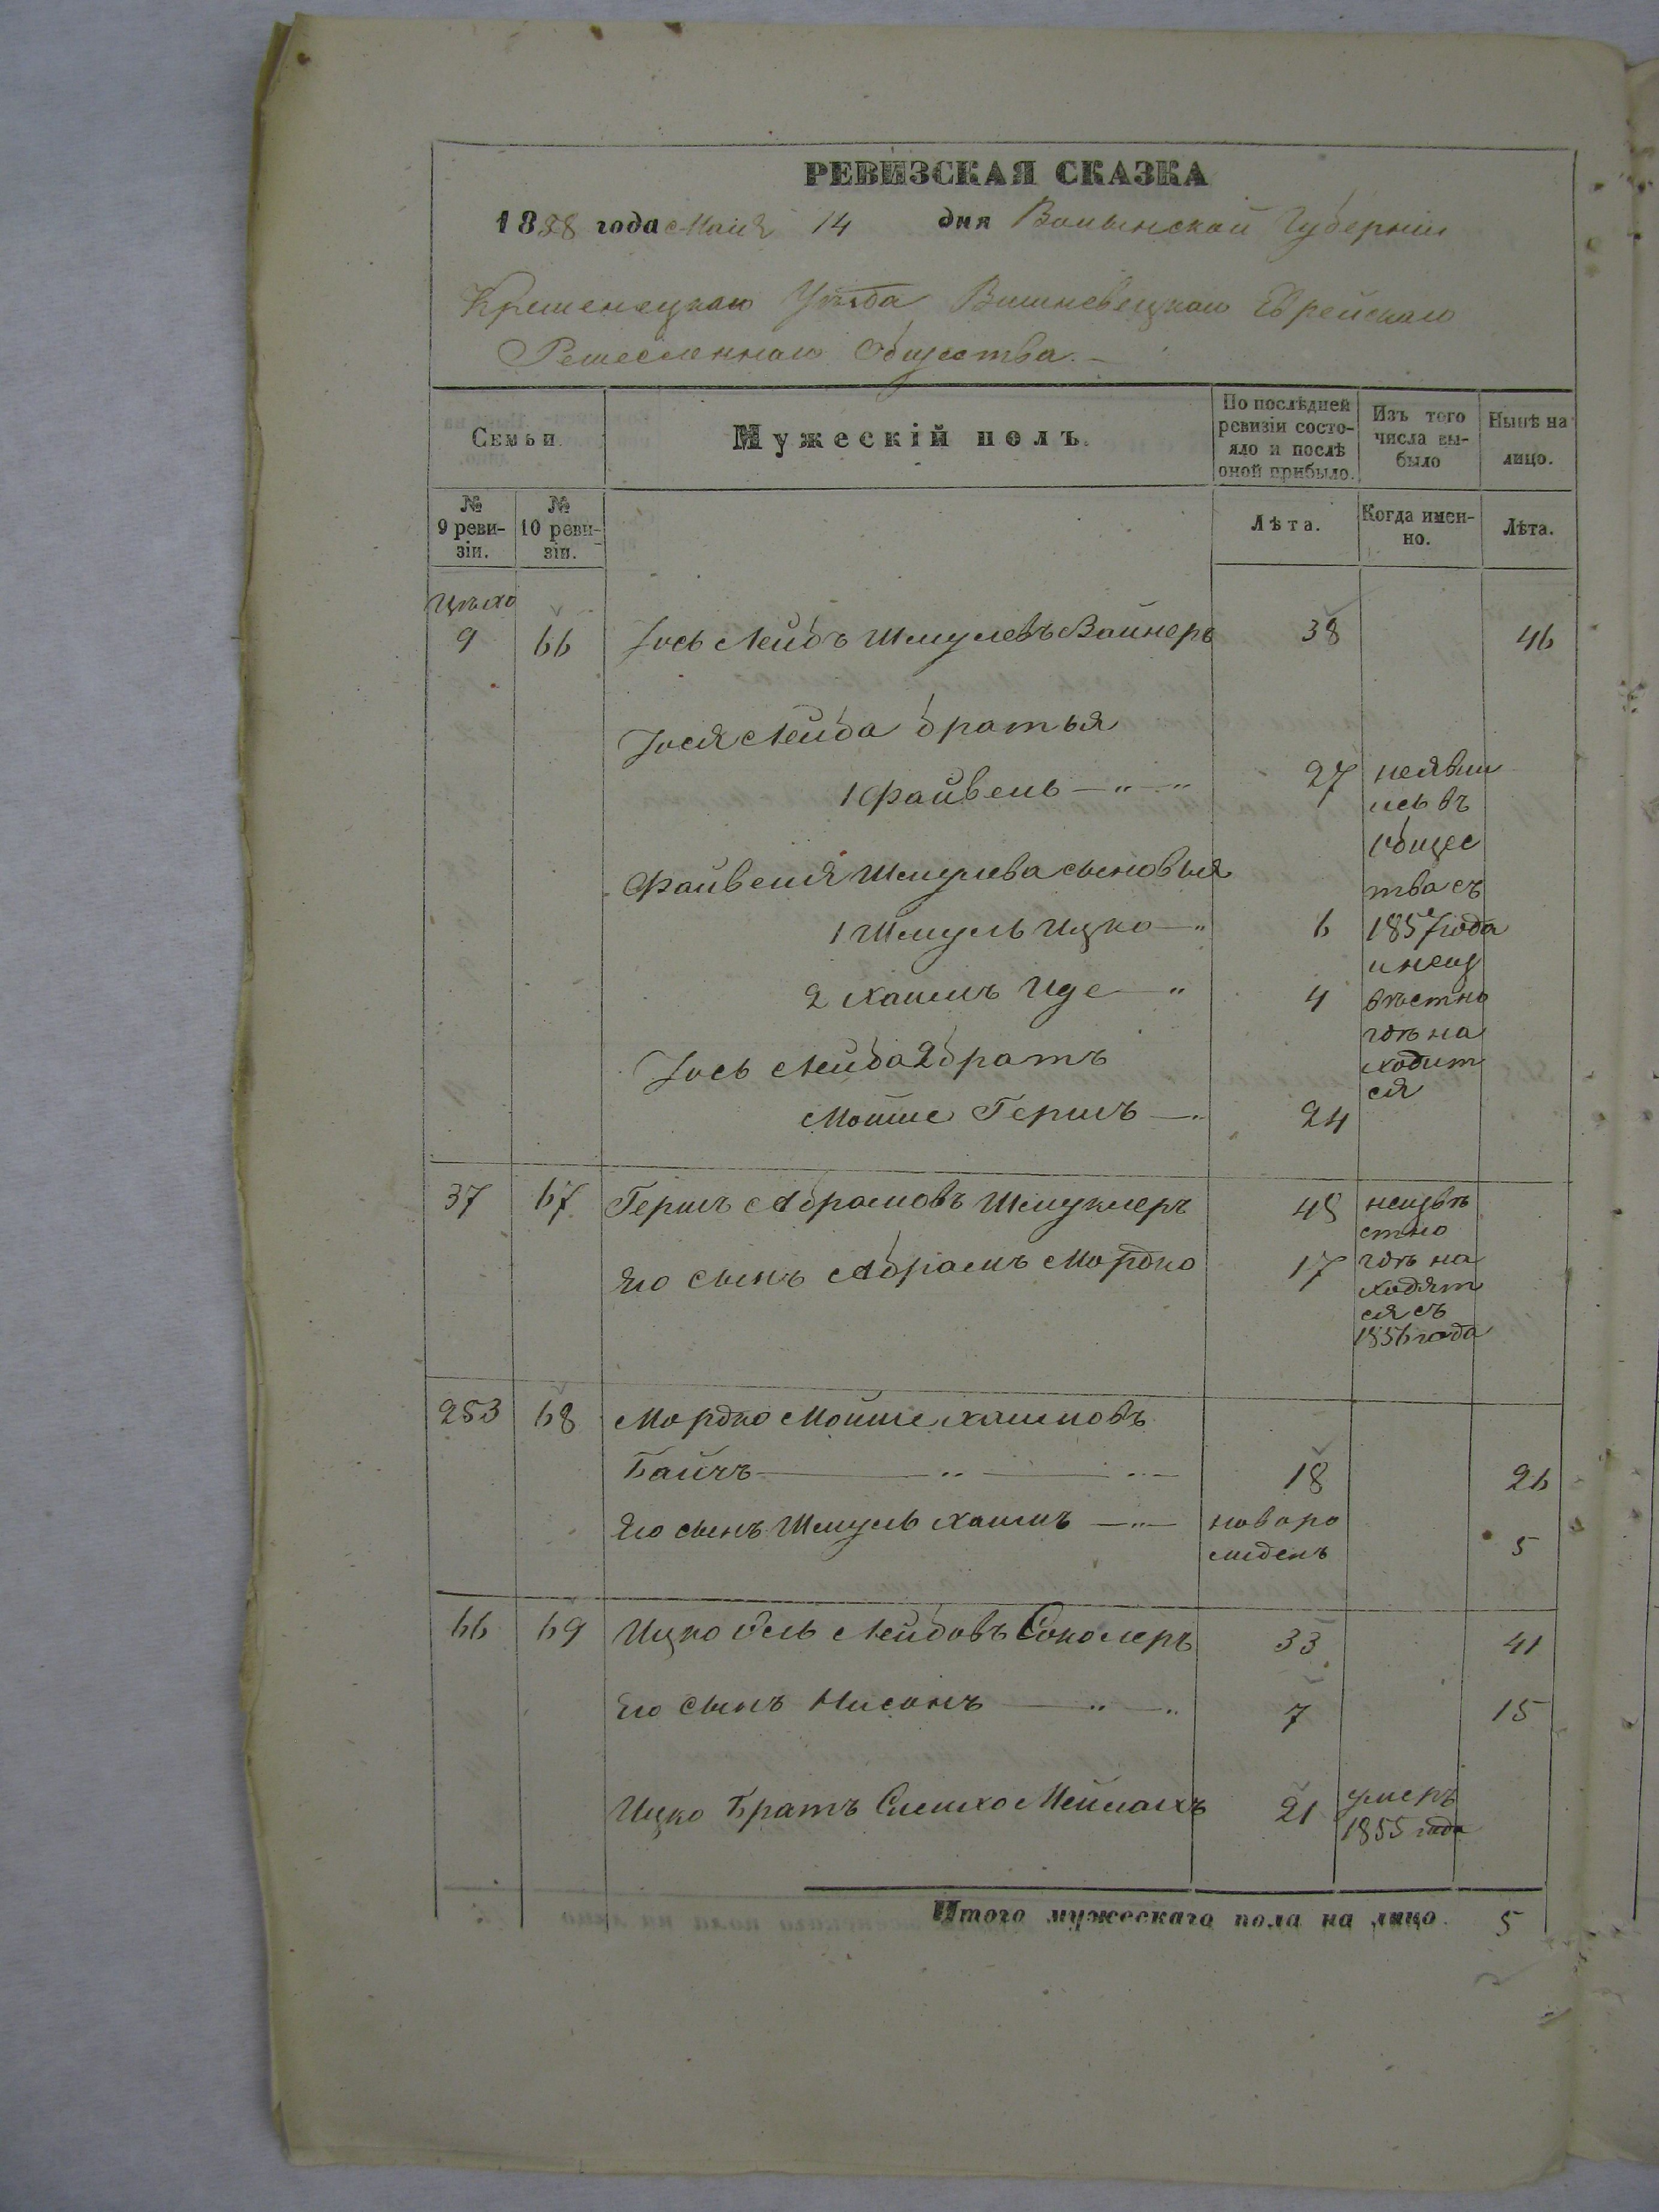 РЕВИЗСКАЯ СКАЗКА
1858 года Маія 14 дня Волынской Губерніи
Кременецкаго Уѣзда Вишневецкаго Еврейскаго
Ремесленнаго Общества.
Семьи. Мужескій полъ. По послѣдней ревизіи состояло и послѣ оной прибыло. Изъ того числа выбыло Нынѣ на лицо.
№ 9 ревизіи. № 10 ревизіи. Лѣта. Когда именно. Лѣта.
9 66 Іось Лейбъ Шмулевъ Вайнеръ 38 46
Іося Лейба братья
1 Файвель — " — " 27 неявили
сь въ
общес
Файвеля Шмулева сыновья
тва съ
1 Шмуль Ицко — " 6 1857 года
и неиз
2 Хаимъ Иде — " 4 вѣстно
гдѣ на
Іось Лейба 2 братъ
ходит
ся
Мойше Гершъ — " 24
37 67 Гершъ Абрамовъ Шмуклеръ 48 неизвѣ
стно
Его сынъ Абрамъ Мордко 17 гдѣ на
ходят
ся съ
1856 года
253 68 Мордко Мойше Хаимовъ
Байчъ — " — " — 18 26
Его сынъ Шмуль Хаимъ — " — новоро
жденъ 5
66 69 Ицко Оель Лейбовъ Соколеръ 33 41
Его сынъ Нисонъ — " — " 7 15
Ицко Братъ Симхо Мейлахъ 21 умеръ
1855 года
Итого мужескаго пола на лицо. 5